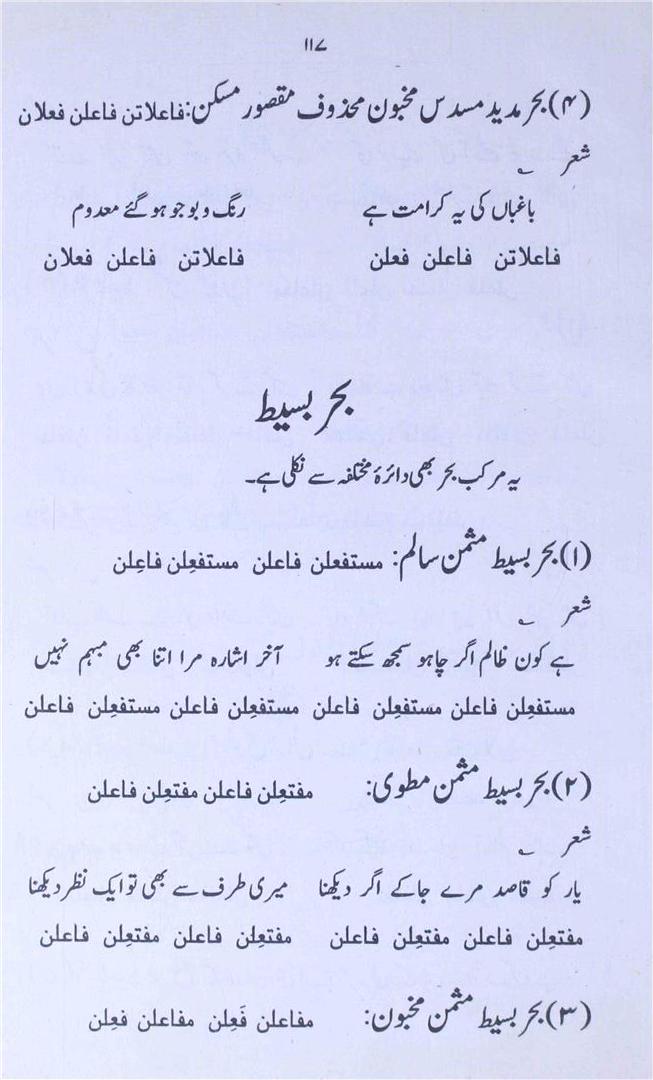 ۱۱۷
(۴) بحر مدید مسدس مخبون محذوف مقصور مسکن: فاعلاتن فاعلن فعلان
شعر ؎
باغباں کی یہ کرامت ہے رنگ و بو جو ہو گئے معدوم
فاعلاتن فاعلن فعلن فاعلاتن فاعلن فعلان
بحر بسیط
یہ مرکب بحر بھی دائرۂ مختلفہ سے نکلی ہے۔
(۱) بحر بسیط مثمن سالم: مستفعلن فاعلن مستفعِلن فاعِلن
شعر ؎
ہے کون ظالم اگر چاہو سمجھ سکتے ہو آخر اشارہ مرا اتنا بھی مبہم نہیں
مستفعِلن فاعلن مستفعِلن فاعلن مستفعِلن فاعلن مستفعِلن فاعلن
(۲) بحر بسیط مثمن مطوی: مفتعِلن فاعلن مفتعِلن فاعلن
شعر ؎
یار کو قاصد مرے جاکے اگر دیکھنا میری طرف سے بھی تو ایک نظر دیکھنا
مفتعِلن فاعلن مفتعِلن فاعلن مفتعِلن فاعلن مفتعِلن فاعلن
(۳) بحر بسیط مثمن مخبون: مفاعلن فَعِلن مفاعلن فعِلن